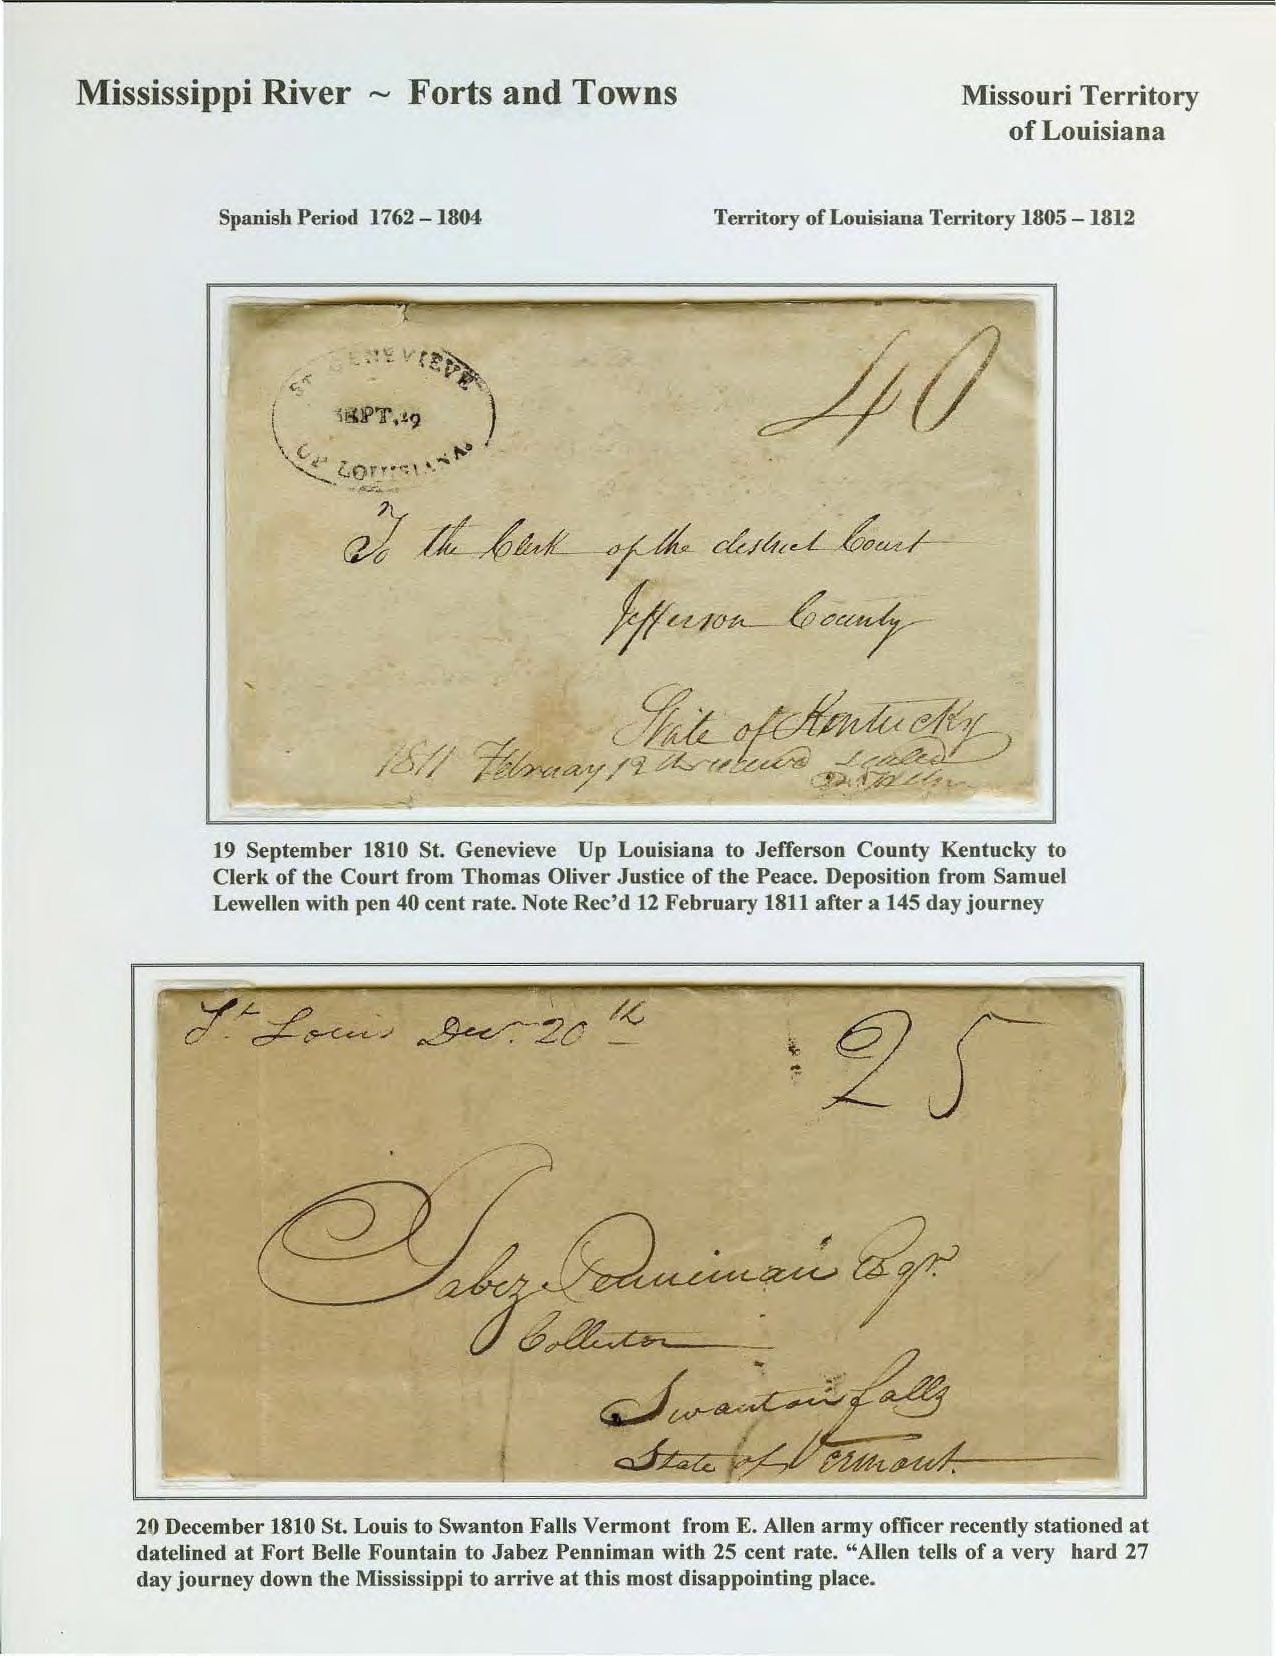 Mississippi River ~ Forts and Towns
Missouri Territory
of Louisiana
Spanish Period 1762 – 1804
Territory of Louisiana Territory 1805 – 1812
ST. GENEVIEVE
SEPT, 19
UP LOUISIANA.
40
To the Clerk of the district Court
Jefferson County
State of Kentucky
1811 February 12 th received sealed
19 September 1810 St. Genevieve Up Louisiana to Jefferson County Kentucky to
Clerk of the Court from Thomas Oliver Justice of the Peace. Deposition from Samuel
Lewellen with pen 40 cent rate. Note Rec'd 12 February 1811 after a 145 day journey
St. Louis Decr. 20th
25
Jabez Penniman Esqr.
Collector
Swanton falls
State of Vermont.
20 December 1810 St. Louis to Swanton Falls Vermont from E. Allen army officer recently stationed at
datelined at Fort Belle Fountain to Jabez Penniman with 25 cent rate. “Allen tells of a very hard 27
day journey down the Mississippi to arrive at this most disappointing place.